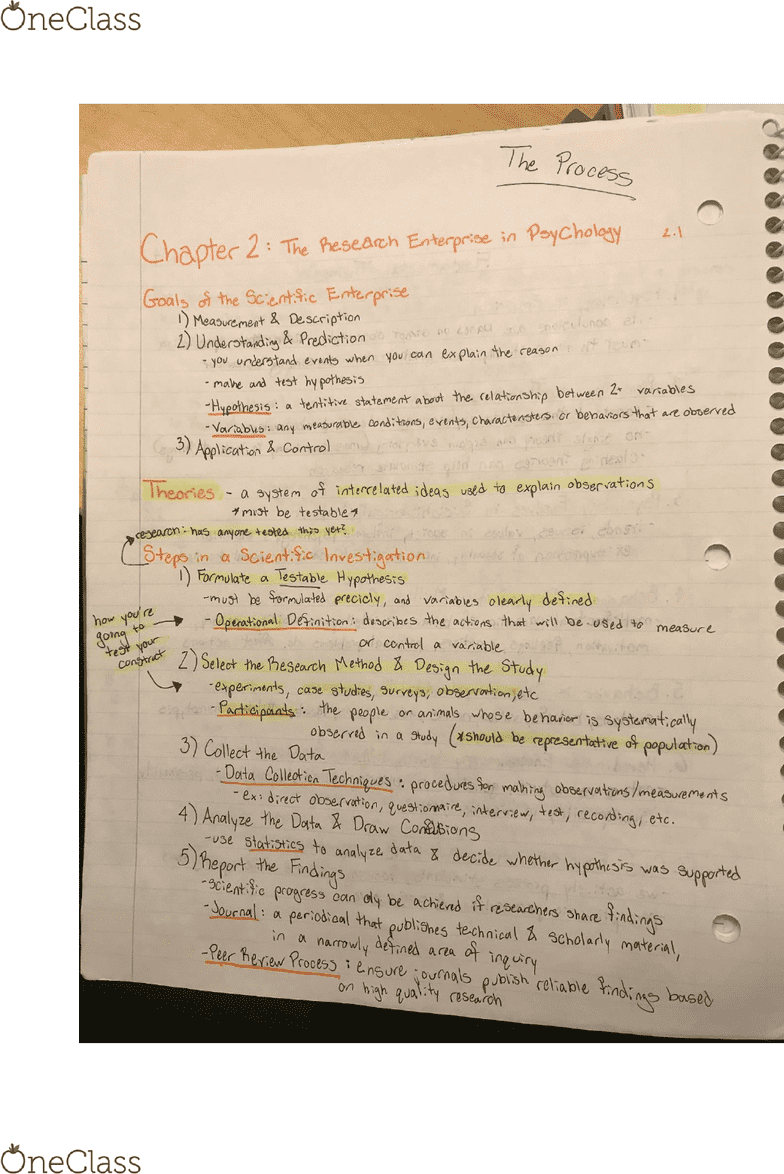 OneClass
The Process
Chapter 2: The Research Enterprise in Psychology 2.1
Goals of the Scientific Enterprise
1) Measurement & Description
2) Understanding & Prediction
- you understand events when you can explain the reason
- make and test hypothesis
- Hypothesis: a tentitive statement about the relationship between 2+ variables
- Variables: any measurable conditions, events, characteristers or behaviors that are observed
3) Application & Control
Theories - a system of interrelated ideas used to explain observations
*must be testable*
research: has anyone tested this yet?
Steps in a Scientific Investigation
1) Formulate a Testable Hypothesis
- must be formulated precicly, and variables clearly defined
- Operational Definition: describes the actions that will be used to measure
or control a variable
how you're
going to
test your
construct
2) Select the Research Method & Design the Study
- experiments, case studies, surveys, observation, etc
- Participants: the people or animals whose behavior is systematically
observed in a study (*should be representative of population)
3) Collect the Data
- Data Collection Techniques: procedures for making observations/measurements
- ex: direct observation, questionaire, interview, test, recording, etc.
4) Analyze the Data & Draw Conclusions
- use statistics to analyze data & decide whether hypothesis was supported
5) Report the Findings
- scientific progress can only be achieved if researchers share findings
- Journal: a periodical that publishes technical & scholarly material,
in a narrowly defined area of inquiry
- Peer Review Process: ensure journals publish reliable findings based
on high quality research
OneClass